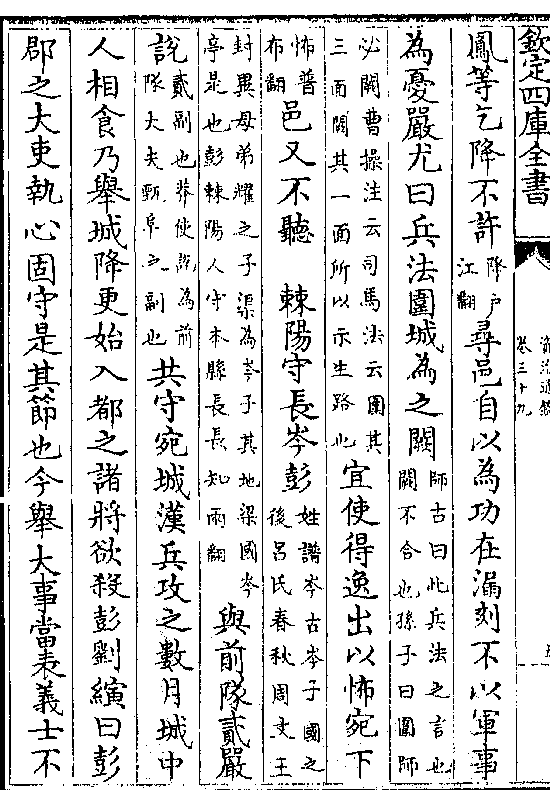 欽定四庫全書
資治通鑑
卷三十九
五
鳳等乞降不許降户江翻尋邑自以為功在漏刻不以軍事
為憂嚴尤曰兵法圍城為之闕師古曰此兵法之言也闕不合也孫子曰圍師
必闕曹操注云司馬法云圍其三面闕其一面所以示生路也宜使得逸出以怖宛下
怖普布翻邑又不聽 棘陽守長岑彭姓譜岑古岑子國之後呂氏春秋周文王
封異母弟耀之子渠為岑子其地梁國岑亭是也彭棘陽人守本縣長長知兩翻與前隊貳嚴
說貳副也莽使說為前隊大夫甄阜之副也共守宛城漢兵攻之數月城中
人相食乃舉城降更始入都之諸將欲殺彭劉縯曰彭
郡之大吏執心固守是其節也今舉大事當表義士不